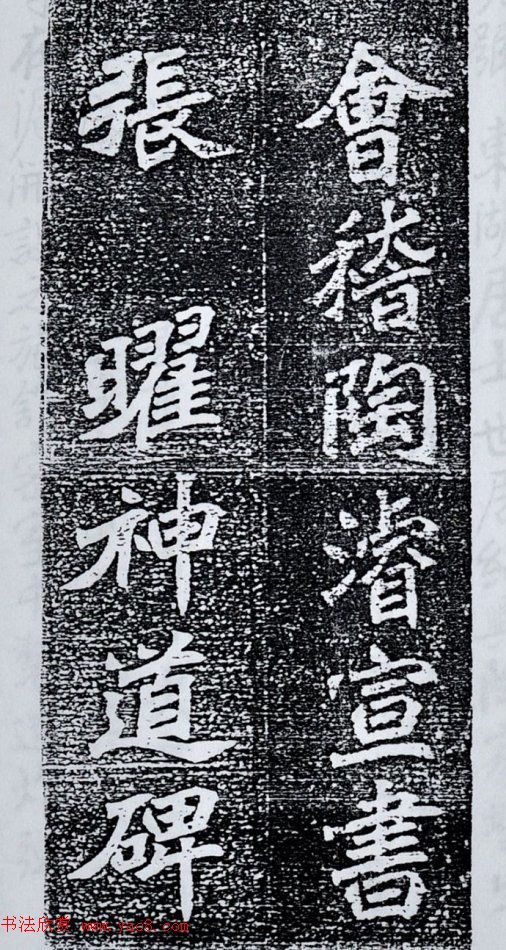 會稽陶濬宣書
張曜神道碑
书法欣赏 www.yac8.com